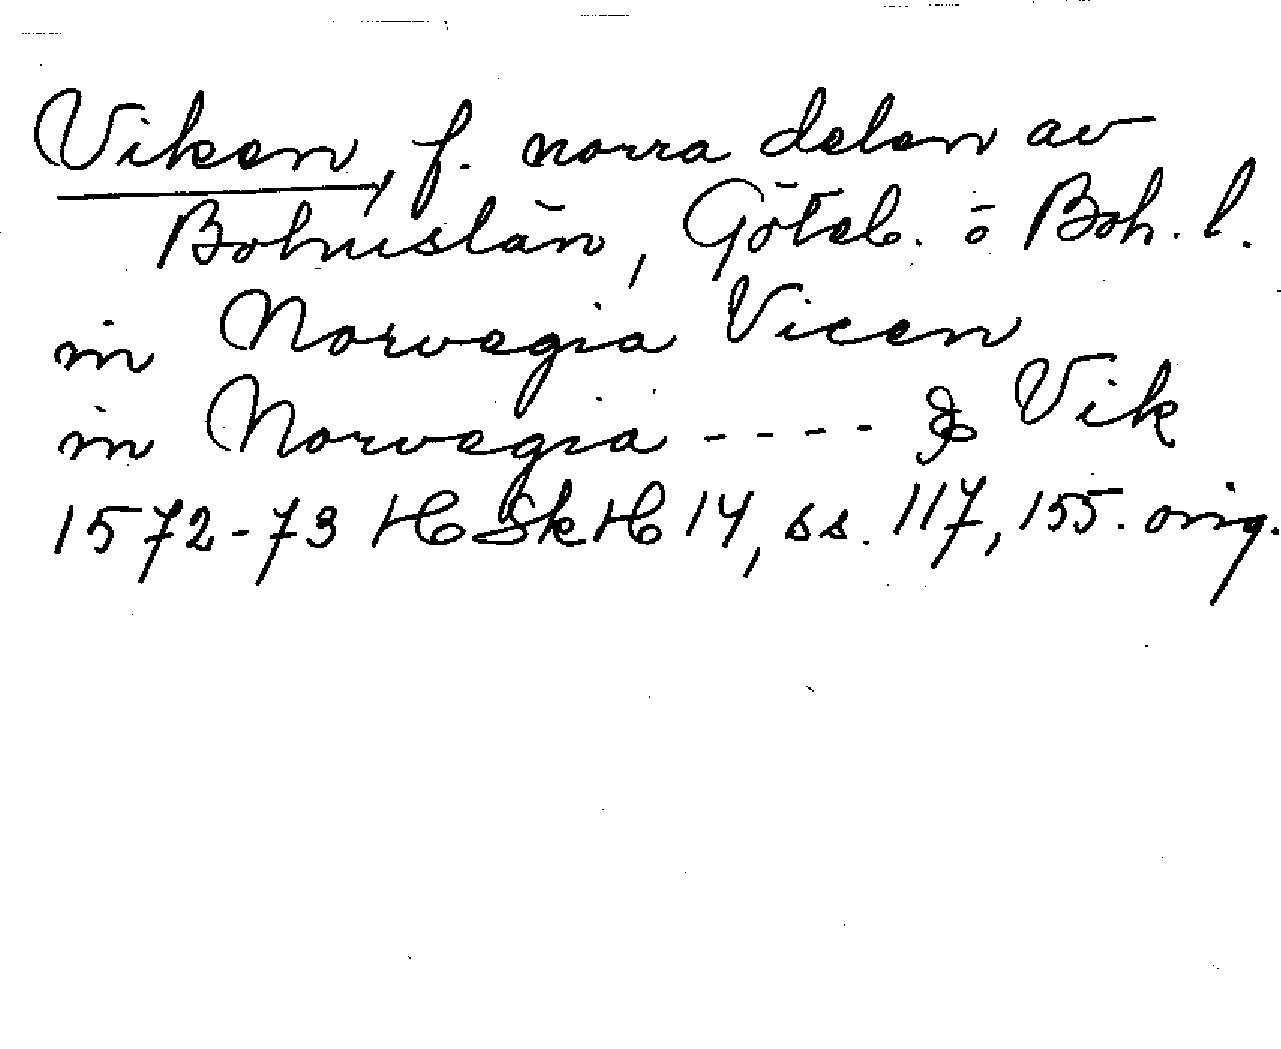 Viken, f. norra delen av
Bohuslän, Göteb. o Boh. l.
in Norvegia Vicen
in Norvegia - - - - & Vik
1572-73 HSkH 14, ss. 117, 155. orig.